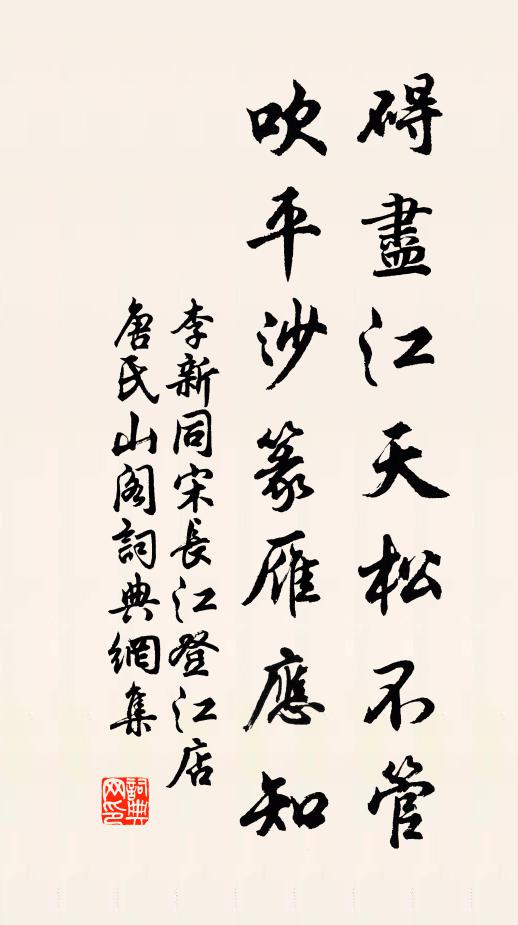 碍盡江天松不管
吹平沙篆雁應知
李新同宋長江登江店
唐氏山阁詞典網集
詞典网印